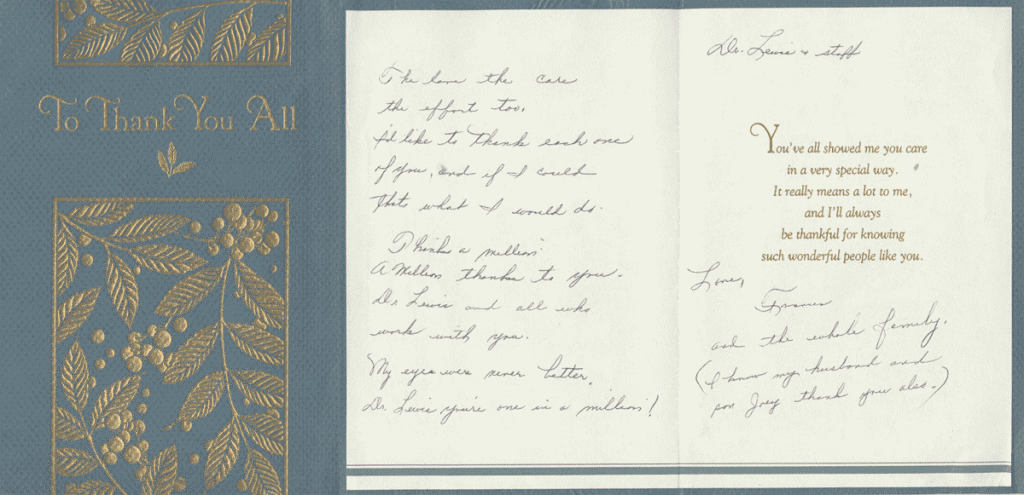 To Thank You All
The love the care
the effort too,
I'd like to thank each one
of you, and if I could
that what I would do.
Thinks a million
A Million thanks to you.
Dr Lewis and all who
work with you.
My eyes were never better,
Dr. Lewis you're one in a million!
Dr. Lewis & staff
You've all showed me you care
in a very special way.
It really means a lot to me,
and I'll always
be thankful for knowing
such wonderful people like you.
Love,
Frances
and the whole family.
(I know my husband and
son Joey thank you also.)